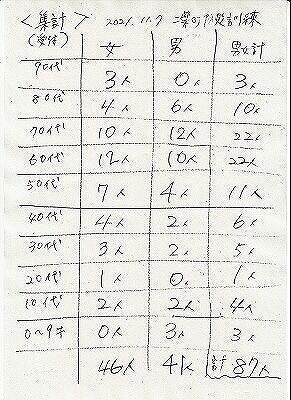 <集計> 2021.11.7 二葉町防災訓練
(受付) 女 男 男女計
90代 3人 0人 3人
80代 4人 6人 10人
70代 10人 12人 22人
60代 12人 10人 22人
50代 7人 4人 11人
40代 4人 2人 6人
30代 3人 2人 5人
20代 1人 0人 1人
10代 2人 2人 4人
0〜9才 0人 3人 3人
46人 41人 計 87人